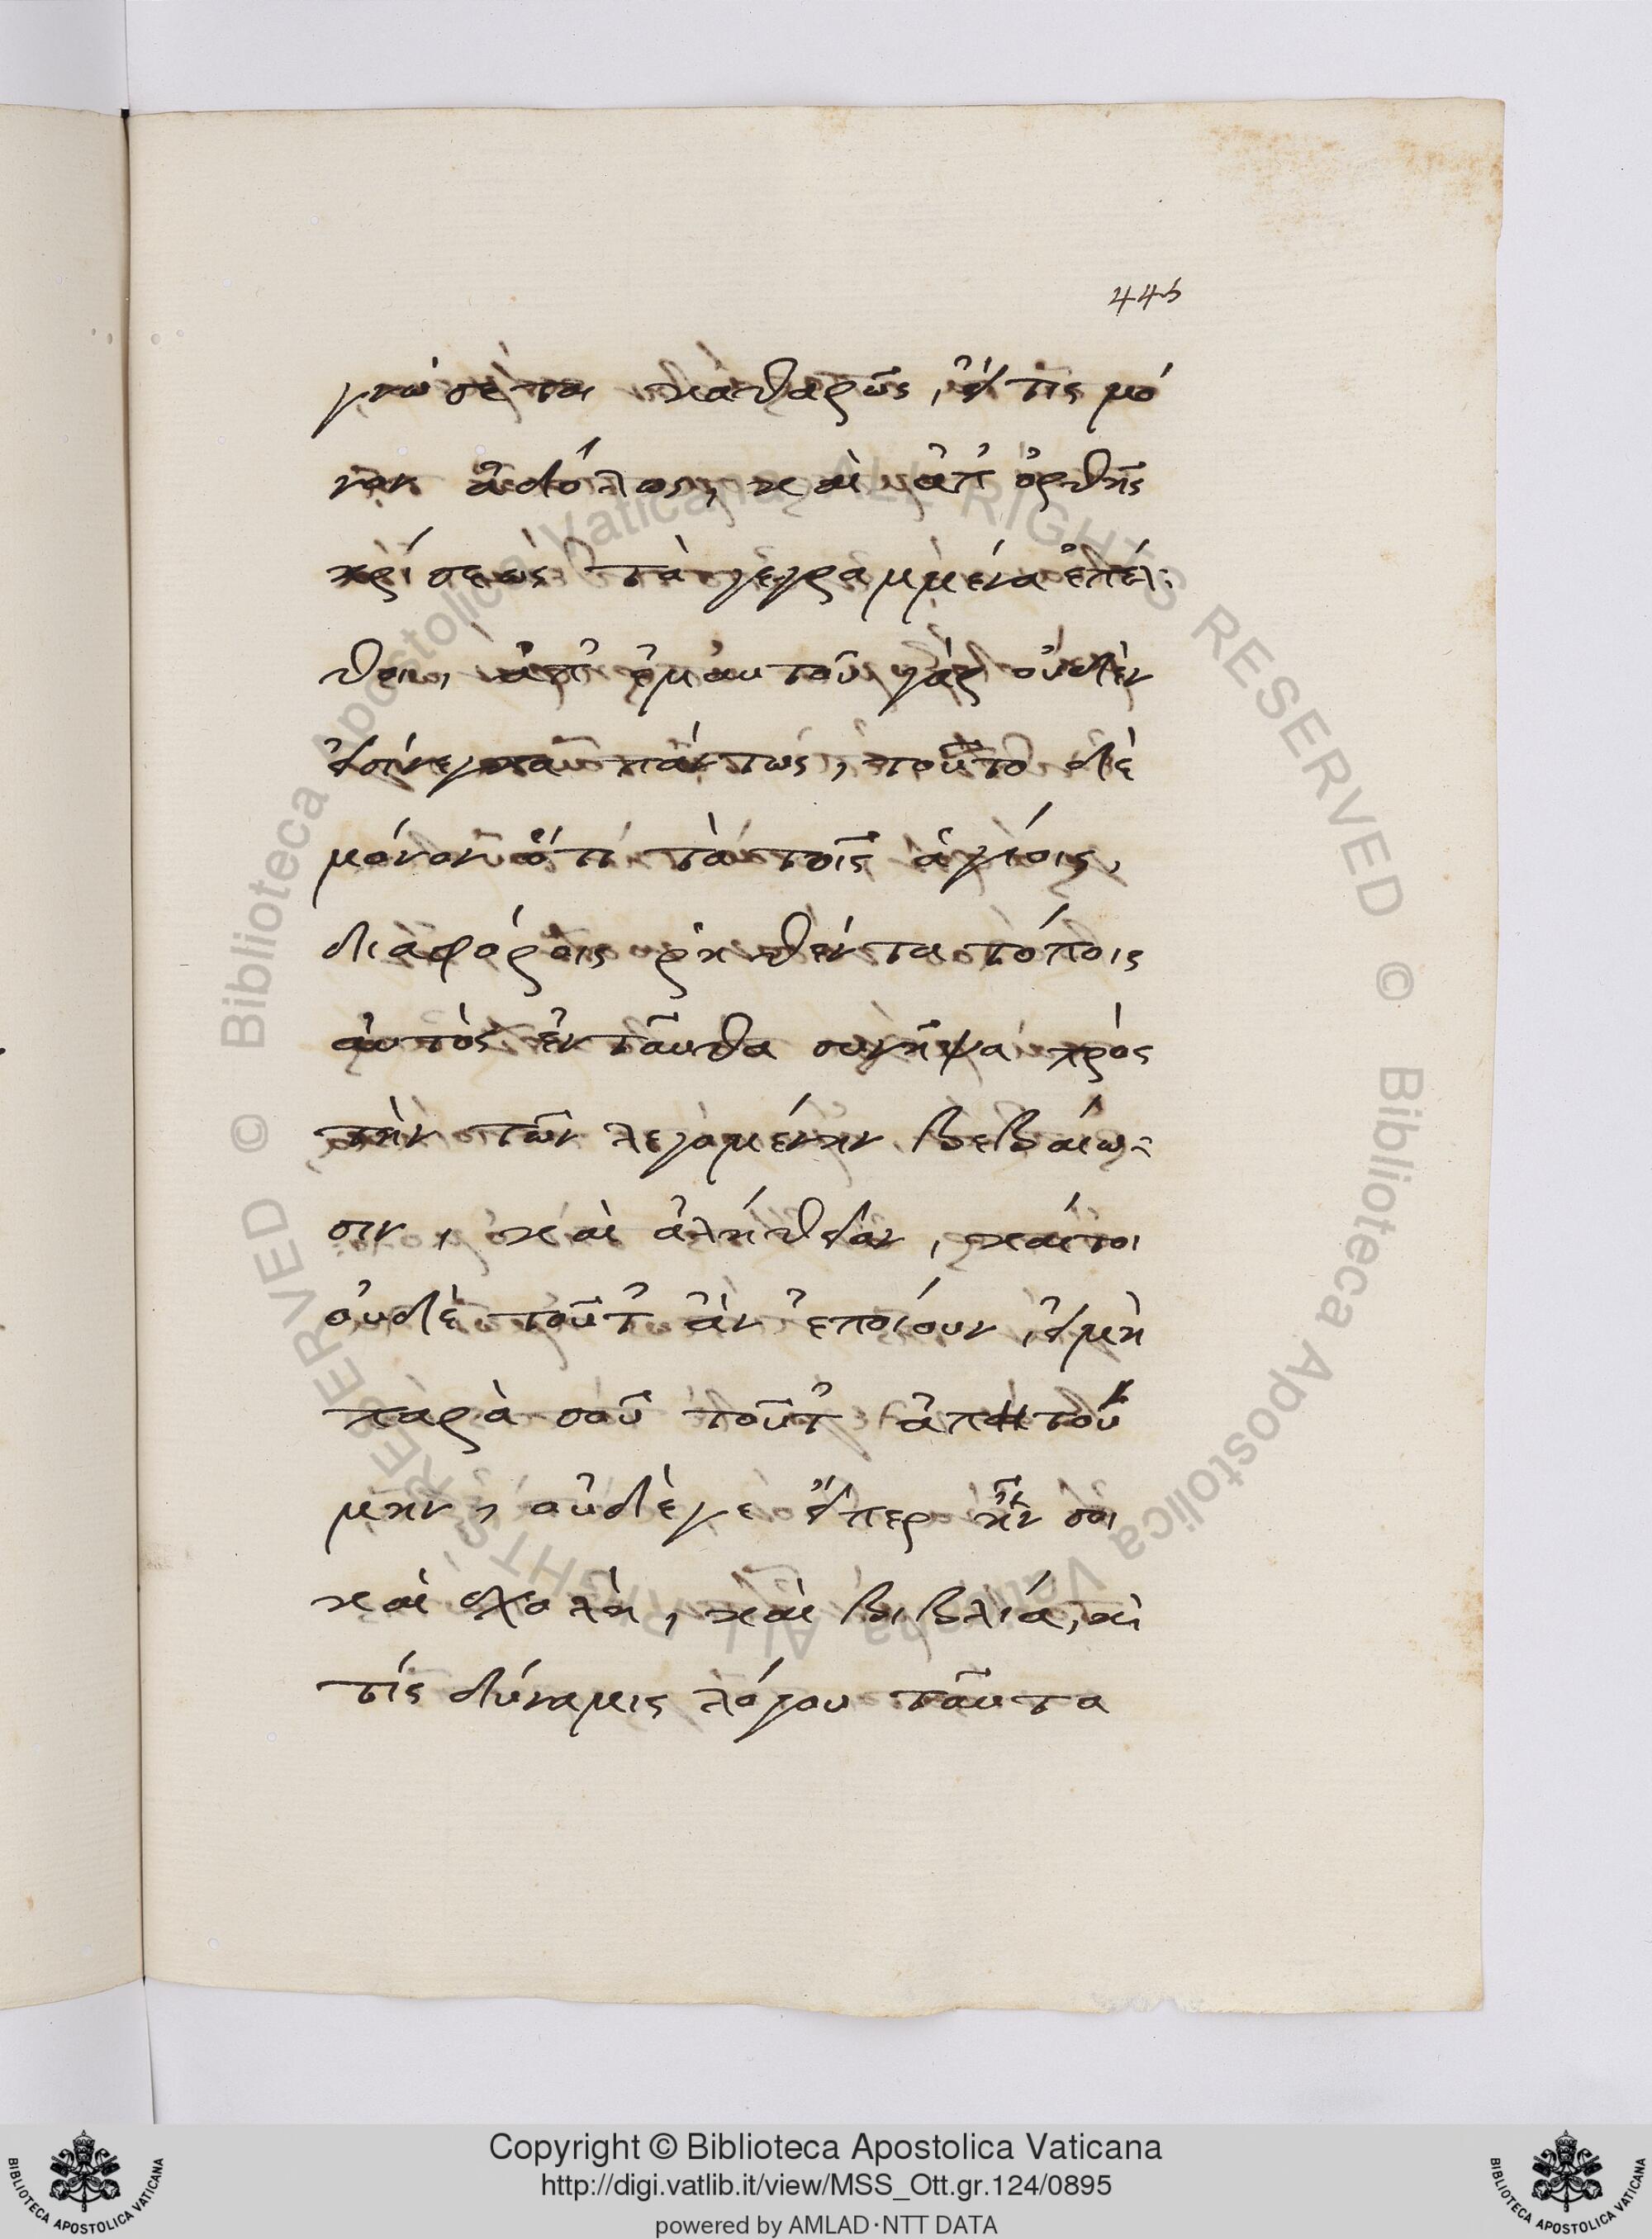 445
γνώσεται καθαρῶς, εἴ τις μό
νον ἀδόλως, καὶ ἀπ' ὀρθῆς
κρίσεως τὰ γεγραμμένα ἐπέλ
θοι, ἀπ' ἐμαυτοῦ γὰρ οὐδὲν
εἰσήνεγκα πάντως, τοῦτο δὲ
μόνον ὅτι τὰ τοῖς ἁγίοις,
διαφόροις ῥηθέντα τόποις
αὐτὸς ἐνταῦθα συνῆψα πρὸς
τὴν τῶν λεγομένην βεβαίω
σιν, καὶ ἀλήθειαν, καίτοι
οὐδὲ τοῦτ' ἂν ἐποίουν, εἰ μὴ
παρὰ σοῦ τοῦτ' ἀπητού
μην, οὐδέ γε εἴπερ ἦν σοι
καὶ σχολὴ, καὶ βιβλία, καὶ
τίς δύναμις λόγου ταῦτα
Copyright © Biblioteca Apostolica Vaticana
http://digi.vatlib.it/view/MSS_Ott.gr.124/0895
powered by AMLAD·NTT DATA
BIBLIOTECA APOSTOLICA VATICANA
BIBLIOTECA APOSTOLICA VATICANA
© Biblioteca Apostolica Vaticana ALL RIGHTS RESERVED
© Biblioteca Apostolica Vaticana ALL RIGHTS RESERVED